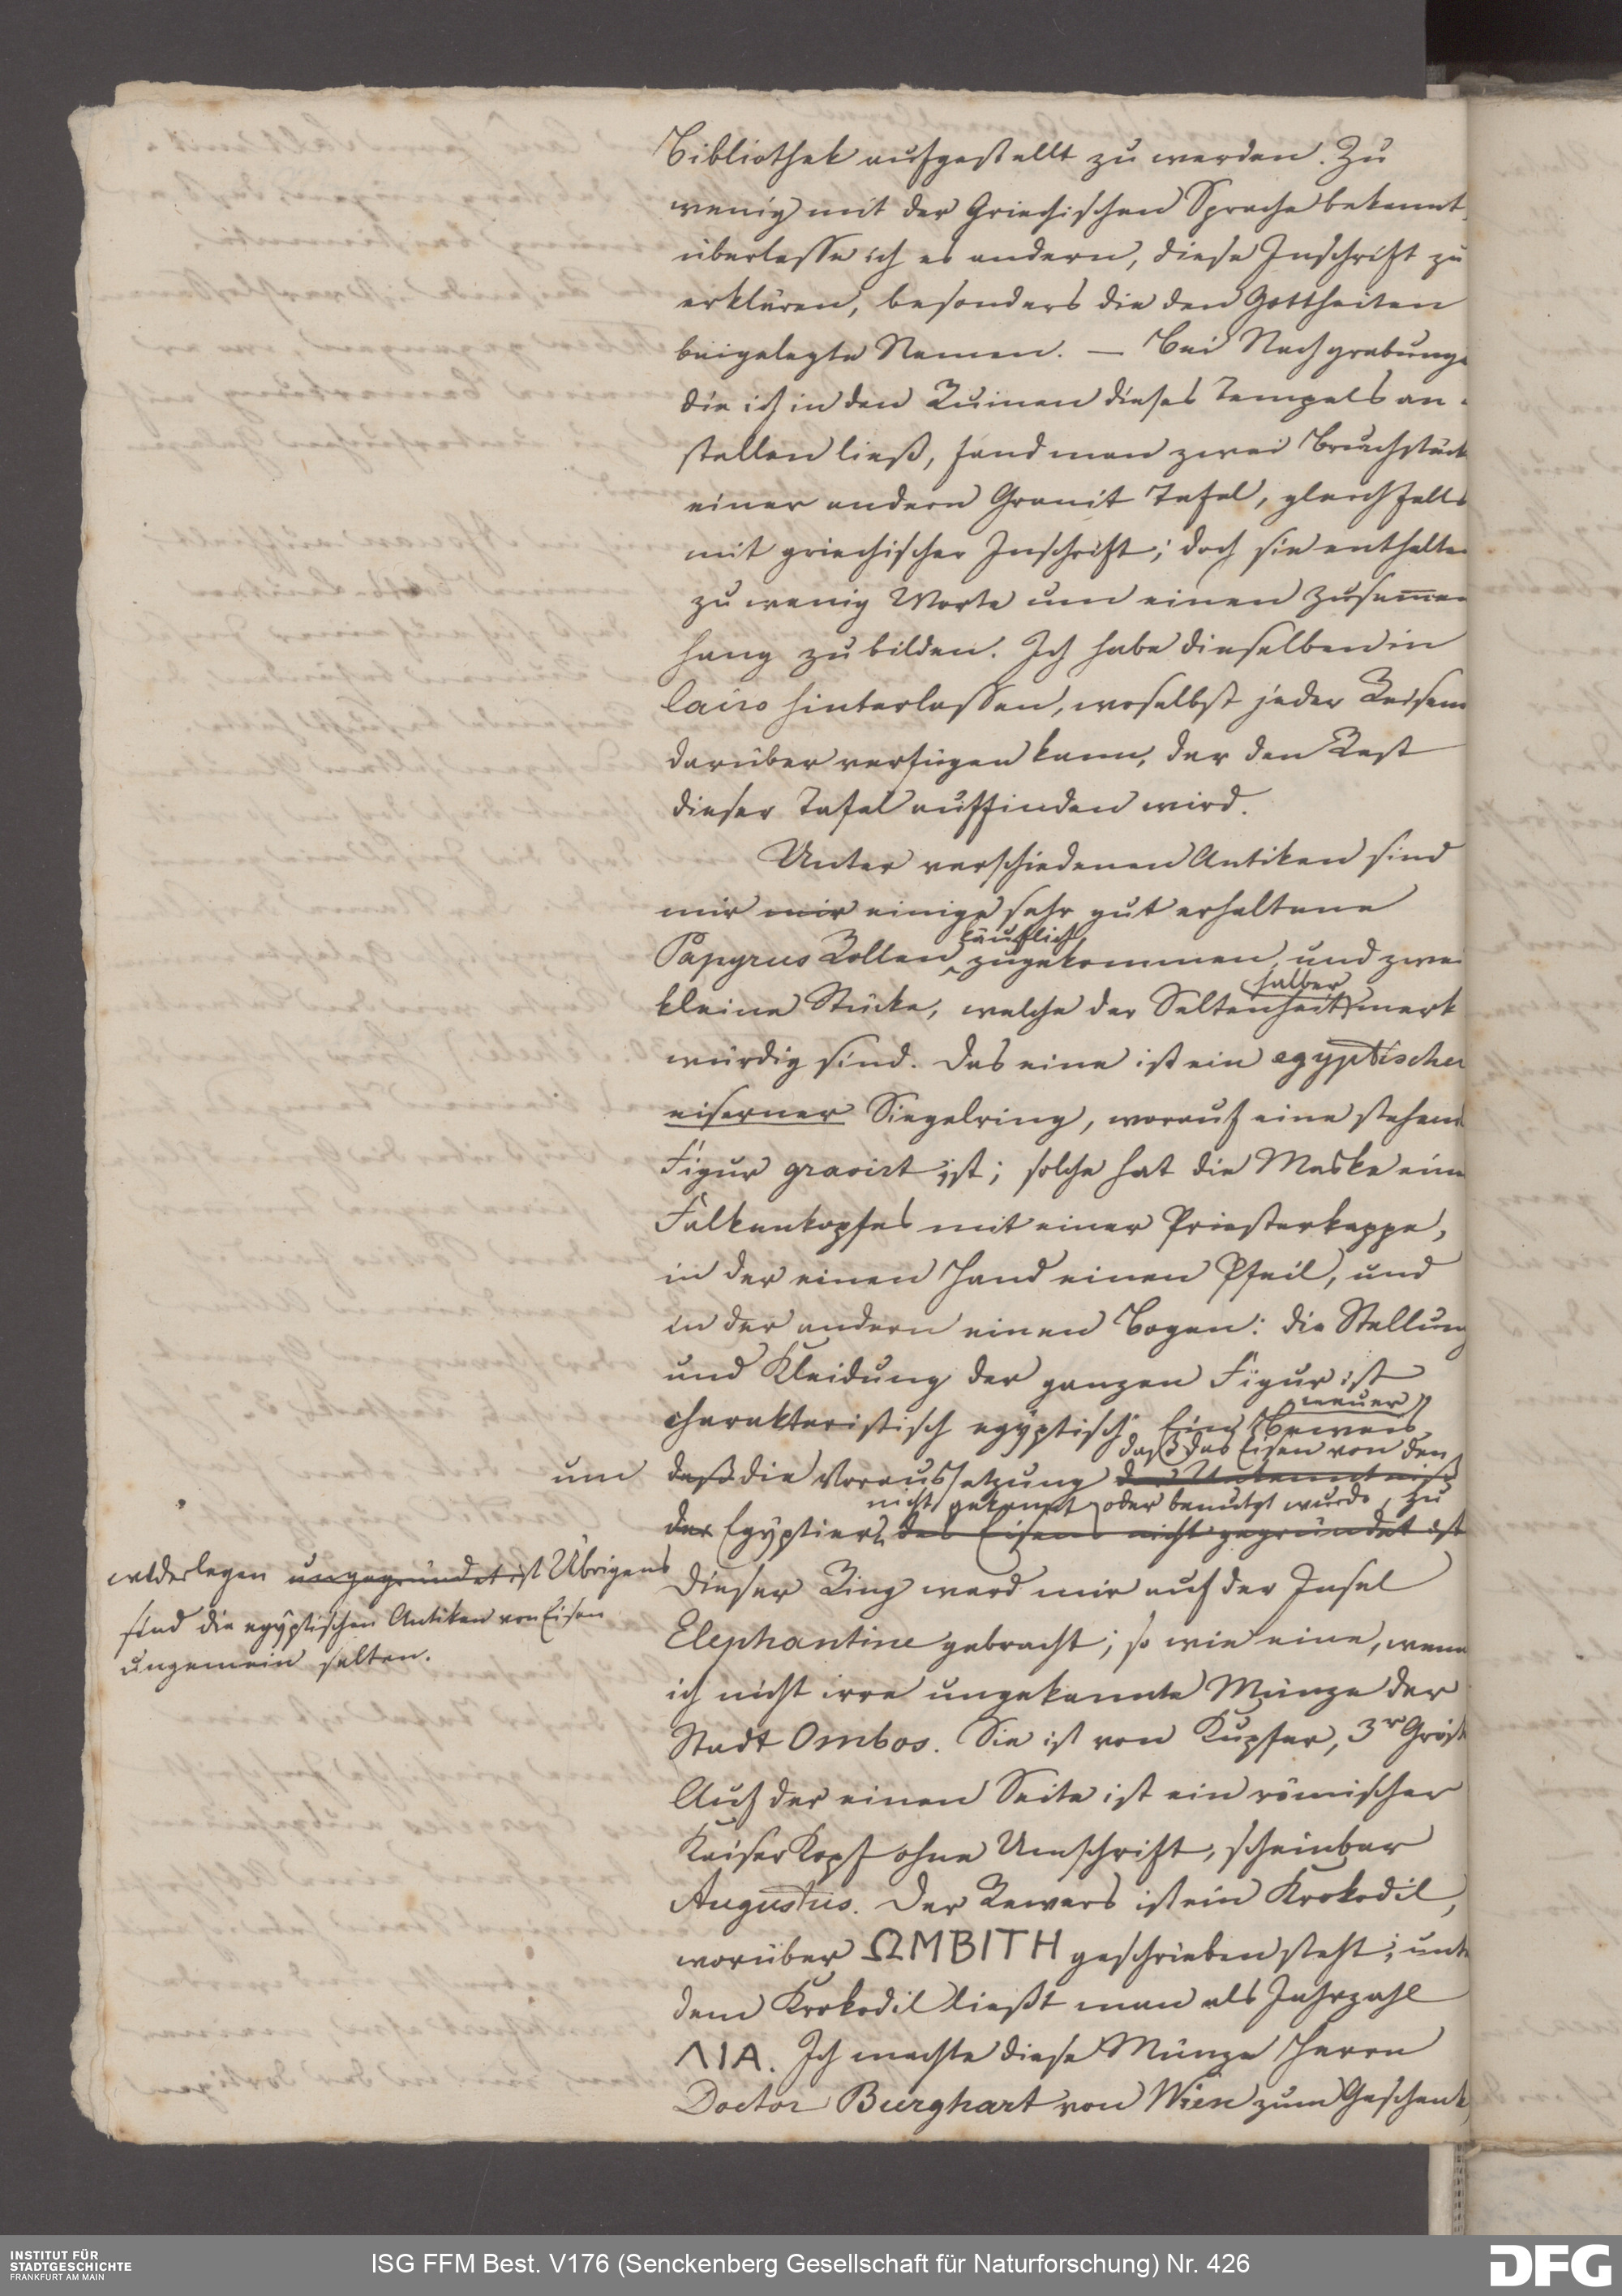 Bibliothek aufgestellt zu werden. Zu
wenig mit der Griechischen Sprache bekannt,
überlasse ich es andern, diese Inschrift zu
erklären, besonders die den Gottheiten
beigelegte Namen. — Bei Nachgrabunge
die ich in den Ruinen dieses Tempels an-
stellen ließ, fand man zwei Bruchstück
einer andern Granit Tafel, gleichfalls
mit griechischer Inschrift; doch sie enthalte
zu wenig Worte um einen Zusammen
hang zu bilden. Ich habe dieselben in
Cairo hinterlassen, woselbst jeder Reisen
darüber verfügen kann, der den Rest
dieser Tafel auffinden wird.
Unter verschiedenen Antiken sind
mir mir einige sehr gut erhaltene
käuflich
Papyrus Rollen zugekommen, und zwei
halber
kleine Stücke, welche der Seltenheit merk
würdig sind. Das eine ist ein egyptischer
eiserner Siegelring, worauf eine stehend
Figur gravirt ist; solche hat die Maske eine
Falkenkopfes mit einer Priesterkappe,
in der einen Hand einen Pfeil, und
in der andern einen Bogen: die Stellung
und Kleidung der ganzen Figur ist
neuer
charakteristisch egyptisch. Ein Beweis,
daß das Eisen von den
um daß die Voraussetzung der Unkenntniß
nicht gekannt oder benutzt wurde, zu
der Egyptier des Eisens nicht gegründet ist
widerlegen ungegründet ist Übrigens
sind die egyptischen Antiken von Eisen
ungemein selten.
Dieser Ring ward mir auf der Insel
Elephantine gebracht; so wie eine, wenn
ich nicht irre ungekannte Münze der
Stadt Ombos. Sie ist von Kupfer, 3r Größe
Auf der einen Seite ist ein römischer
Kaiser Kopf ohne Umschrift, scheinbar
Augustus. Der Revers ist ein Krokodil,
worüber ΩMBITH geschrieben steht; unte
dem Krokodil ließt man als Jahrzahl
ΛIA. Ich machte diese Münze Herrn
Doctor Burghart von Wien zum Geschenk
INSTITUT FÜR
STADTGESCHICHTE
FRANKFURT AM MAIN
ISG FFM Best. V176 (Senckenberg Gesellschaft für Naturforschung) Nr. 426
DFG